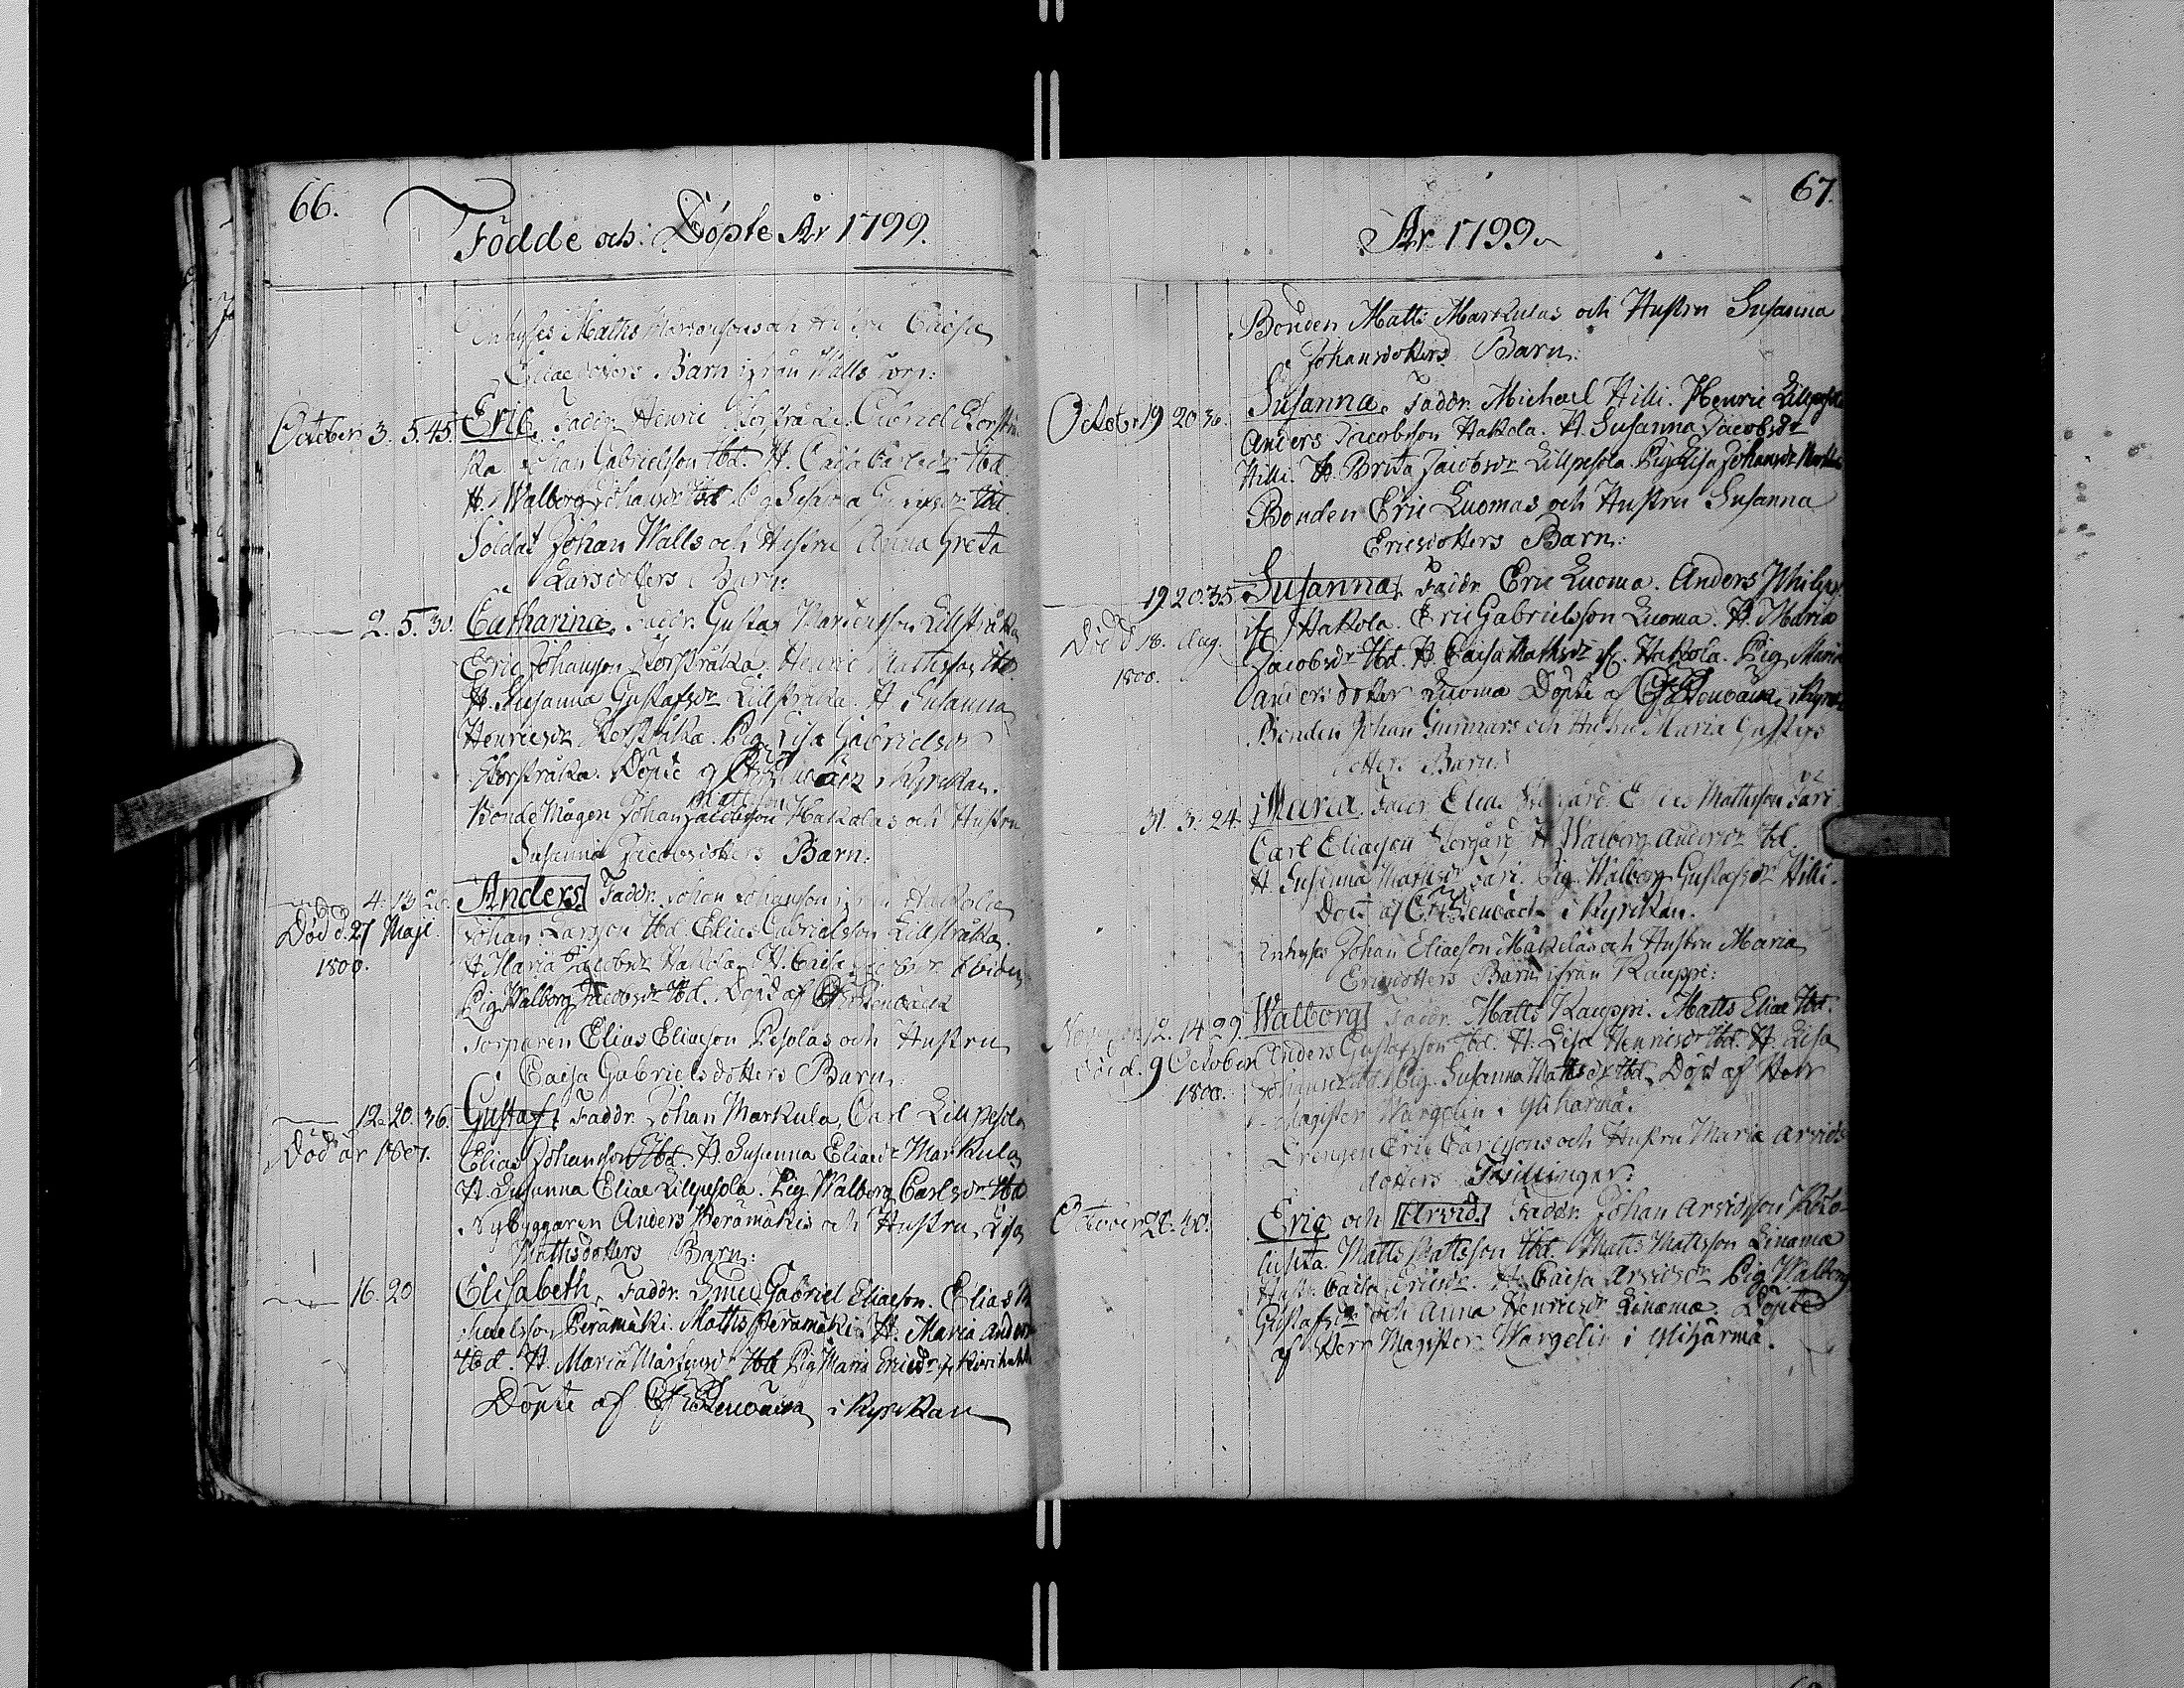 66.
Födde och Döpte År 1799.
Inhyses Matts och Hustru Caisa
Eliaedotters Barn ifrån Walls Torp:
October 3. 5. 45. Eric, Faddr. Henric Storstråka. Gabriel Storstrå
ka. Johan Gabrielsson Ibd. H. Caisa Carlsdr Ibd.
H. Walborg Johansdr Ibd. Pig Susanna Ibd.
Soldat Johan Walls och Hustru Anna Greta
Larsdotters Barn:
2. 5. 30. Catharina, Faddr. Gustaf Lillstråka
Eric Johansson Storstråka. Henric Mattsson Ibd.
H. Susanna Gustafsdr Lillstråka. H Susanna
Henricsdr Storstråka. Pig Lisa Gabrielsdr
Storstråka. Döpte af i Kyrckan.
Bonde Mågen Johan Jacobsson Mattsson Hakolas och Hustru
Susanna Jacobsdotters Barn:
4. 13. 26. Anders Faddr. Johan Johansson Hakola
Död d. 27 Maji Johan Larsson Ibd. Elias Gabrielsson Lillstråka.
1800. H Maria Jacobsdr Hakola. H. Caisa
Pig Walborg Jacobsdr Ibd. Döpt af
Torparen Elias Eliaeson Pesolas och Hustru
Caisa Gabrielsdotters Barn:
12. 20. 36. Gustaf, Faddr. Johan Markula, Carl Lillpesola
Död år 1807. Elias Johansson Ibd. H. Susanna Eliaedr Markula
H. Susanna Eliae Lillpesola. Pig Walborg Carlsdr Ibd
Nybyggaren Anders Perämäkis och Hustru Lisa
Mattsdotters Barn:
16. 20 Elisabeth, Faddr. Gabriel Eliaeson. Elias Mi
chaelsson Perämäki. Matts Perämäki. H. Maria Anders
Ibd. H. Maria Ibd Pig Maria Ericsdr
Döpte af i Kyrckan
67.
År 1799.
Bonden Matts Markulas och Hustru Susanna
Johansdotters Barn:
October 19 20 30. Susanna, Faddr. Michael Hilli. Henric Lillpesola
Anders Jacobsson Hakola. H. Susanna Jacobsdr
Hilli. H. Brita Jacobsdr Lillpesola. Pig Lisa Johansdr
Bonden Eric Luomas och Hustru Susanna
Ericsdotters Barn:
19 20. 35. Susanna, Faddr. Eric Luoma. Anders
Död d 18. Aug. Hakola. Eric Gabrielsson Luoma. H. Maria
1800. Jacobsdr Ibd. H. Caisa Mattsdr Hakola. Pig Maria
Andersdotter Luoma Döpte af i Kyrck
Bonden Johan Gunnars och Hustru Maria Gustafs
dotters Barn:
31. 3. 24. Maria, Faddr. Elias Elias Mattsson Järi
Carl Eliaeson Storgård H Walborg Andersdr Ibd.
H. Susanna Mattsdr Järi. Pig Walborg Gustafsdr Hilli.
Döpt af i Kyrckan.
Inhyses Johan Eliaeson Mäkeläs och Hustru Maria
Ericsdotters Barn ifrån Kauppi:
November 12. 14 29. Walborg Faddr. Matts Kauppi. Matts Eliae Ibd.
Död d. 9 October Anders Gustafsson Ibd. H. Lisa Henricsdr Ibd. H. Lisa
1800. Johansdr Ibd. Pig. Susanna Mattsdr Ibd. Döpt af Herr
Magister Wargelin i Ylihärmä.
Drengen Eric Carlssons och Hustru Maria Arvids
dotters Tvillingar:
October 28. 30. Eric och Arvid. Faddr. Johan Arvidsson
Matts Mattsson Ibd. Matts Mattsson Linama
Hust. Caisa Ericsdr. H. Caisa Arvidsdr Pig Walborg
Gustafsdr och Anna Henricsdr Linama. Döpte
af Herr Magister Wargelin i Ylihärmä.